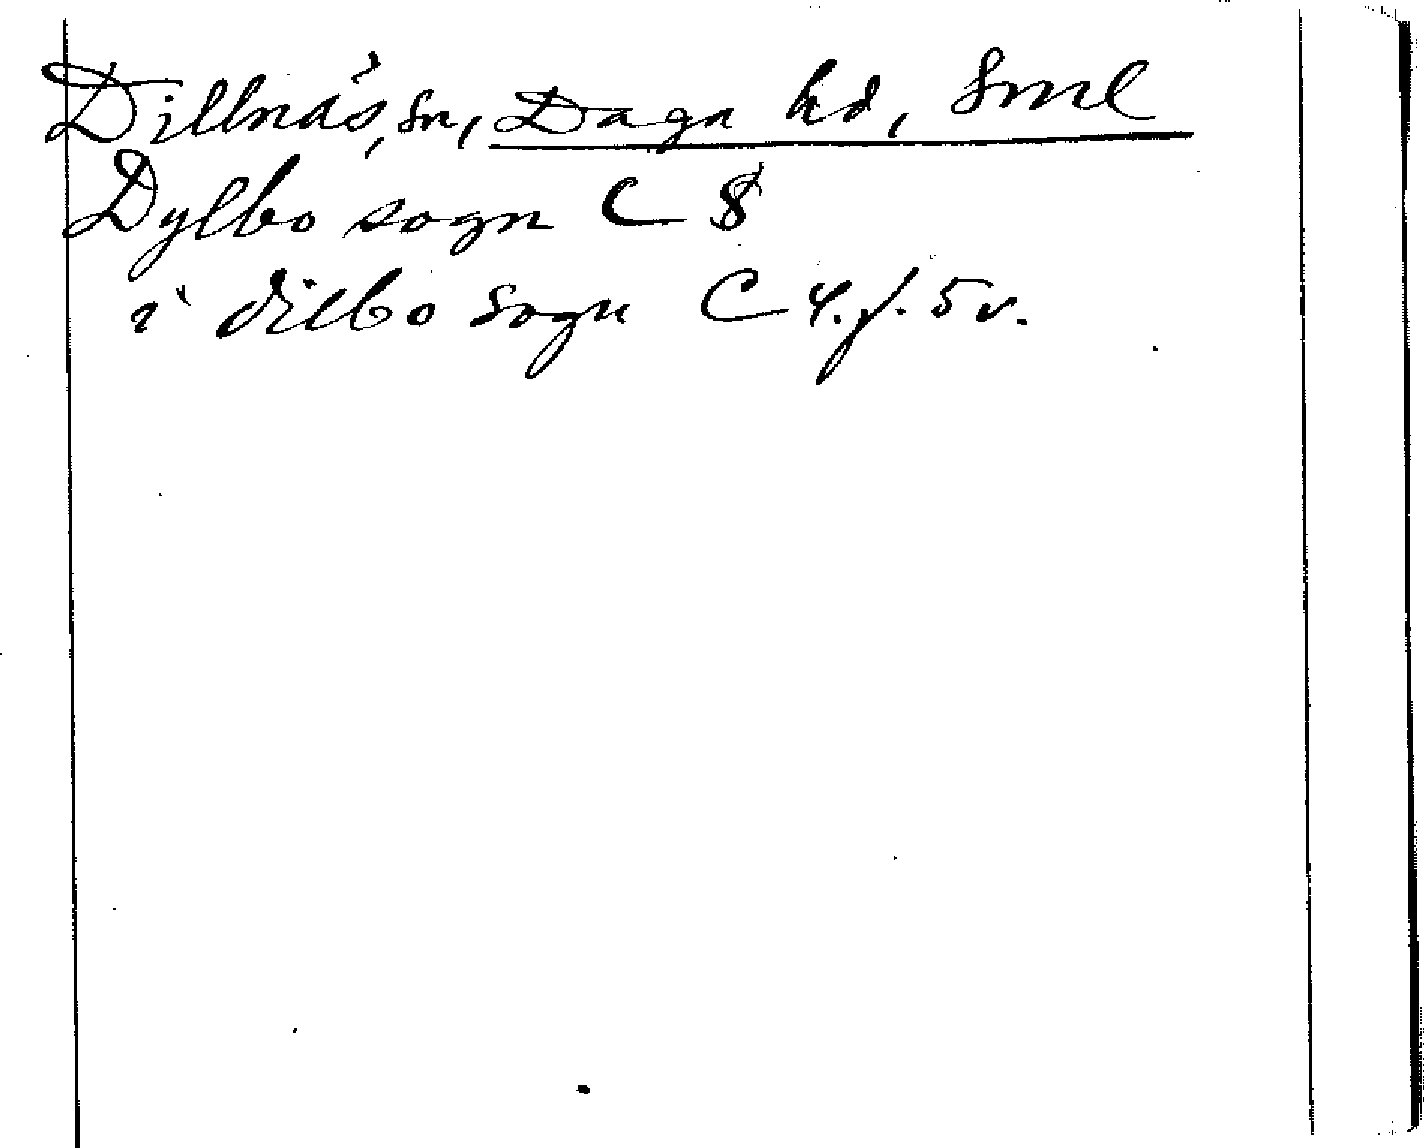 Dillnäs, sn, Daga hd, Sml
Dylbo sogn C 8
i dilbo sogn C 4. f. 5 v.